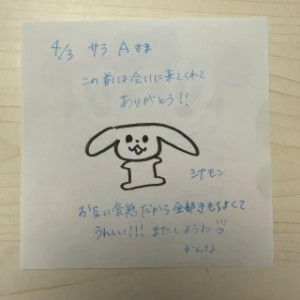 4/3 サラ Aさま
この前は会いに来てくれて
ありがとう!!
シナモン
お互い
だから
もちよくて
うれしい!!! またしようね
かんな